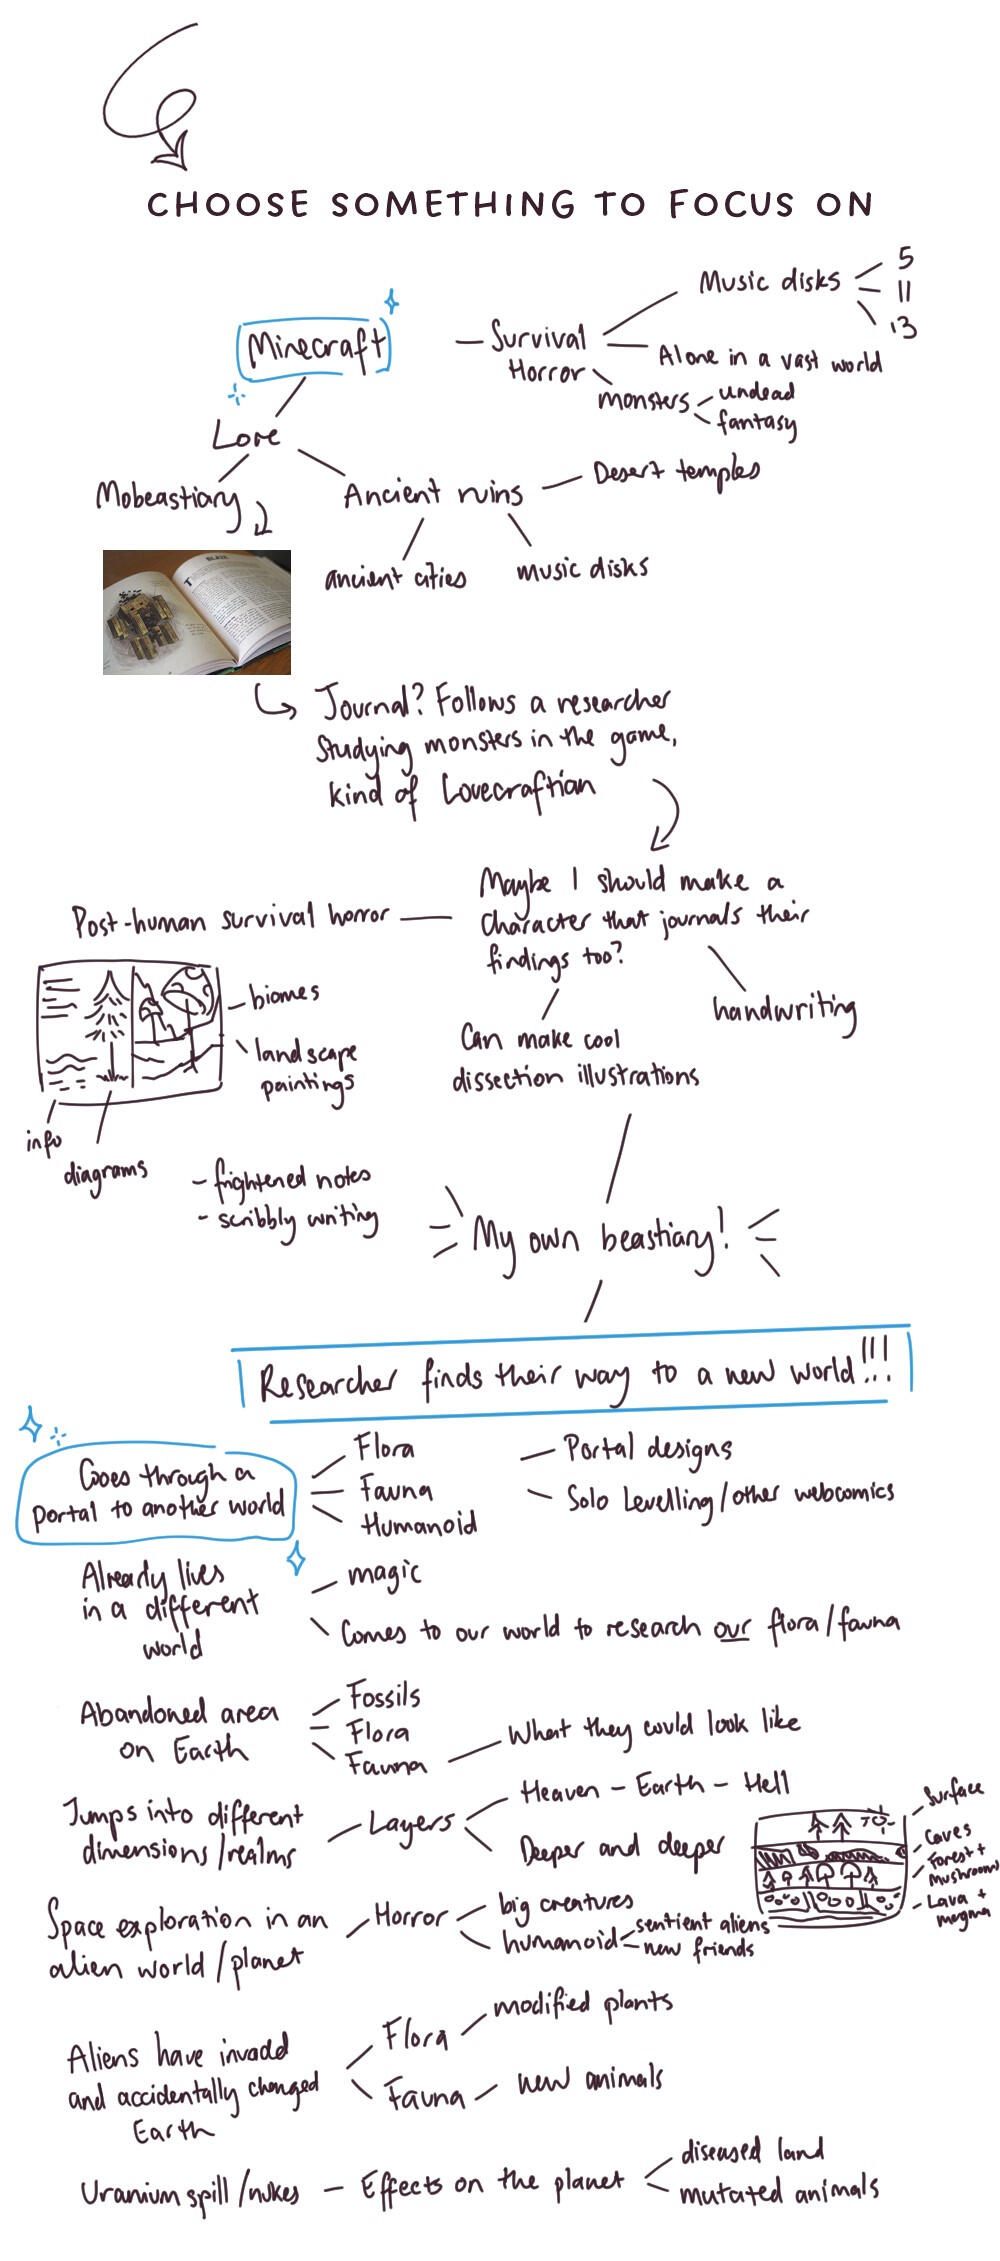 CHOOSE SOMETHING TO FOCUS ON
Minecraft
Survival
Horror
Music disks
5
11
13
Alone in a vast world
monsters
undead
fantasy
Lore
Mobeastiary
Ancient ruins
Desert temples
ancient cities
music disks
BLAZE
Journal? Follows a researcher
Studying monsters in the game,
kind of Lovecraftian
Maybe I should make a
character that journals their
findings too?
Post-human survival horror
biomes
landscape
paintings
info
diagrams
handwriting
Can make cool
dissection illustrations
- frightened notes
- scribbly writing
My own beastiary!
Researcher finds their way to a new world!!!
Goes through a
portal to another world
Flora
Fauna
Humanoid
Portal designs
Solo Levelling/other webcomics
Already lives
in a different
world
magic
Comes to our world to research our flora/fauna
Abandoned area
on Earth
Fossils
Flora
Fauna
What they could look like
Jumps into different
dimensions/realms
Layers
Heaven - Earth - Hell
Deeper and deeper
Surface
Caves
Forest +
Mushrooms
Lava +
magma
Space exploration in an
alien world/planet
Horror
big creatures
humanoid
sentient aliens
new friends
Aliens have invadd
and accidentally changed
Earth
Flora
modified plants
Fauna
new animals
Uranium spill/nukes - Effects on the planet
diseased land
mutated animals